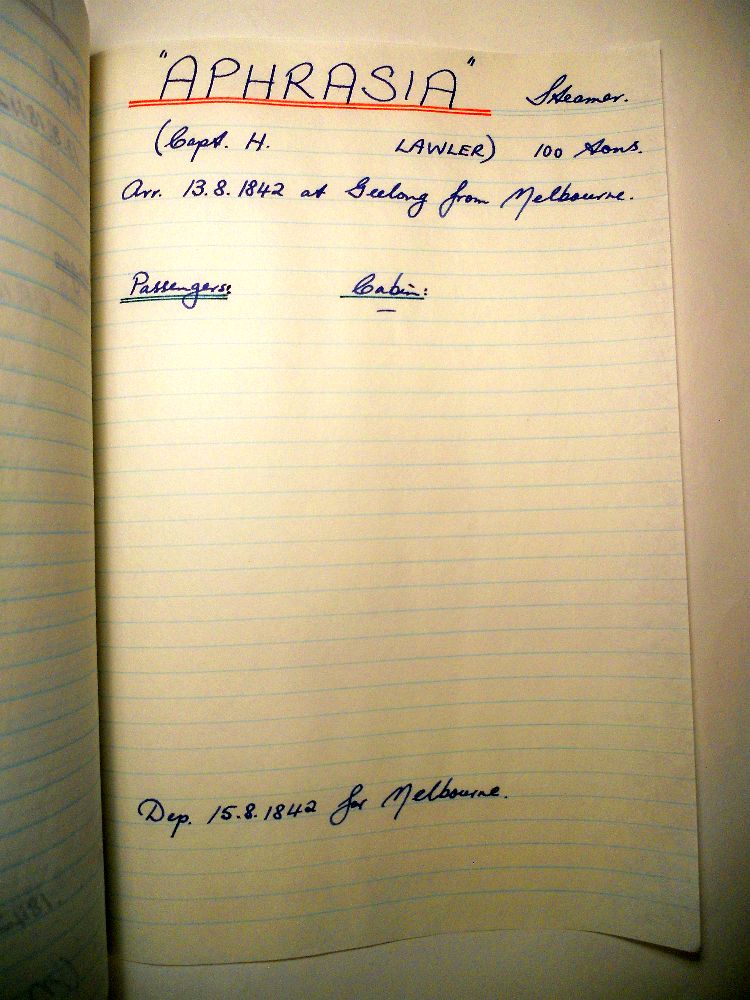 "APHRASIA" Steamer.
(Capt. H. LAWLER) 100 tons.
Arr. 13.8.1842 at Geelong from Melbourne.
Passengers: Cabin:
—
Dep. 15.8.1842 for Melbourne.